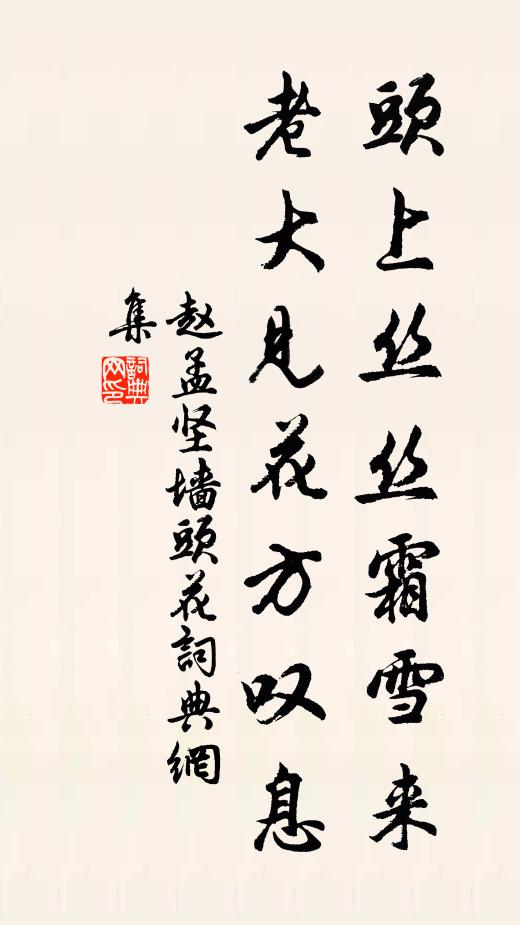 頭上丝丝霜雪来
老大見花方叹息
赵孟坚墙頭花詞典網
集
詞典网印